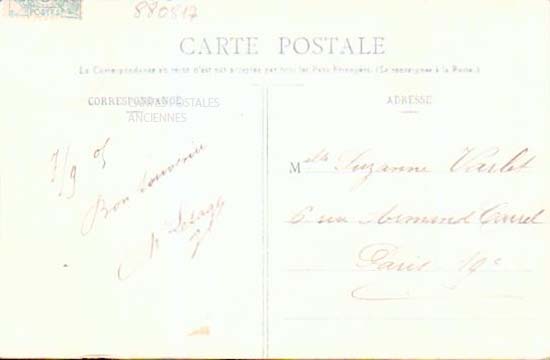 POSTES
880517
CARTE POSTALE
La Correspondance au recto n'est pas acceptée par tous les Pays Étrangers. (Se renseigner à la Poste.)
CORRESPONDANCE
CARTES POSTALES
ANCIENNES
7/9 05
Bon souvenir
Lesage
ADRESSE
Mlle Suzanne Varlet
6 rue Armand Carrel
Paris 19e